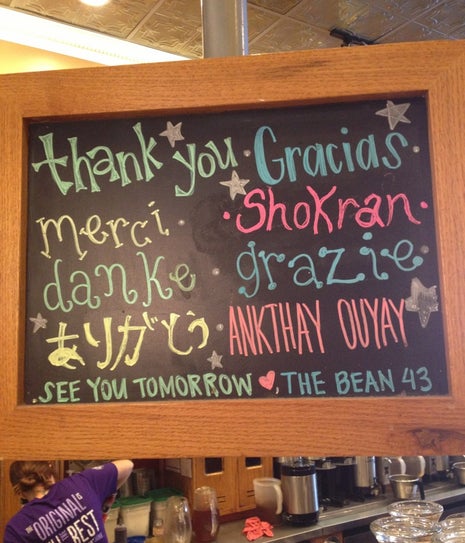 thank you · Gracias
merci · Shokran ·
danke grazie
ありがとう ANKTHAY OUYAY
. SEE YOU TOMORROW ♥, THE BEAN 43
THE ORIGINAL IS
THE BEST